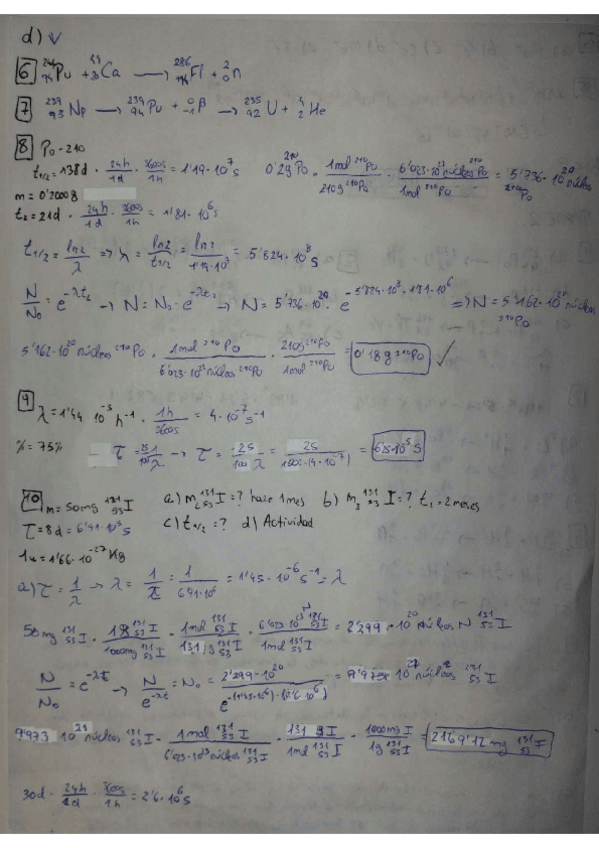 d) V
6 244/94 Pu + 48/20 Ca → 286/114 Fl + 2 1/0 n
7 239/93 Np → 239/94 Pu + 0/-1 β → 235/92 U + 4/2 He
8 Po-210
t1/2 = 138d · 24h/1d · 3600s/1h = 1'19·10^7 s 0'2g 210Po · 1mol 210Po/210g 210Po · 6'023·10^23 núcleos 210Po/1mol 210Po = 5'736·10^20 núcleos 210Po
m = 0'2000g
t2 = 21d · 24h/1d · 3600s/1h = 1'81·10^6 s
t1/2 = ln2/λ ⇒ λ = ln2/t1/2 = ln2/1'19·10^7 = 5'824·10^8 s
N/N0 = e^-λt2 → N = N0·e^-λt2 → N = 5'736·10^20 · e^-5'824·10^8·1'81·10^6 ⇒ N = 5'162·10^20 núcleos 210Po
5'162·10^20 núcleos 210Po · 1mol 210Po/6'023·10^23 núcleos 210Po · 210g 210Po/1mol 210Po = 0'18g 210Po ✓
9
λ = 1'44·10^-3 h^-1 · 1h/3600s = 4·10^-7 s^-1
% = 75% τ = 25/100 1/λ → τ = 25/100 λ = 25/100·(4·10^-7) = 625·10^5 s
10 m = 50mg 131/53 I a) m 131/53 I = ? hace 1mes b) m 131/53 I = ? t1 = 2meses
τ = 8d = 6'91·10^5 s c) t1/2 = ? d) Actividad
1u = 1'66·10^-27 Kg
a) τ = 1/λ → λ = 1/τ = 1/6'91·10^5 = 1'45·10^-6 s^-1 = λ
50mg 131/53 I · 1g 131/53 I/1000mg 131/53 I · 1mol 131/53 I/131g 131/53 I · 6'023·10^23 N 131/53 I/1mol 131/53 I = 2'299·10^20 núcleos N 131/53 I
N/N0 = e^-λt → N/e^-λt = N0 = 2'299·10^20/e^-(1'45·10^-6)·(2'6·10^6) = 9'973·10^21 núcleos 131/53 I
9'973 10^21 núcleos 131/53 I · 1mol 131/53 I/6'023·10^23 núcleos 131/53 I · 131gI/1mol 131/53 I · 1000mg I/1g 131/53 I = 2169'12 mg 131/53 I
30d · 24h/1d · 3600s/1h = 2'6·10^6 s